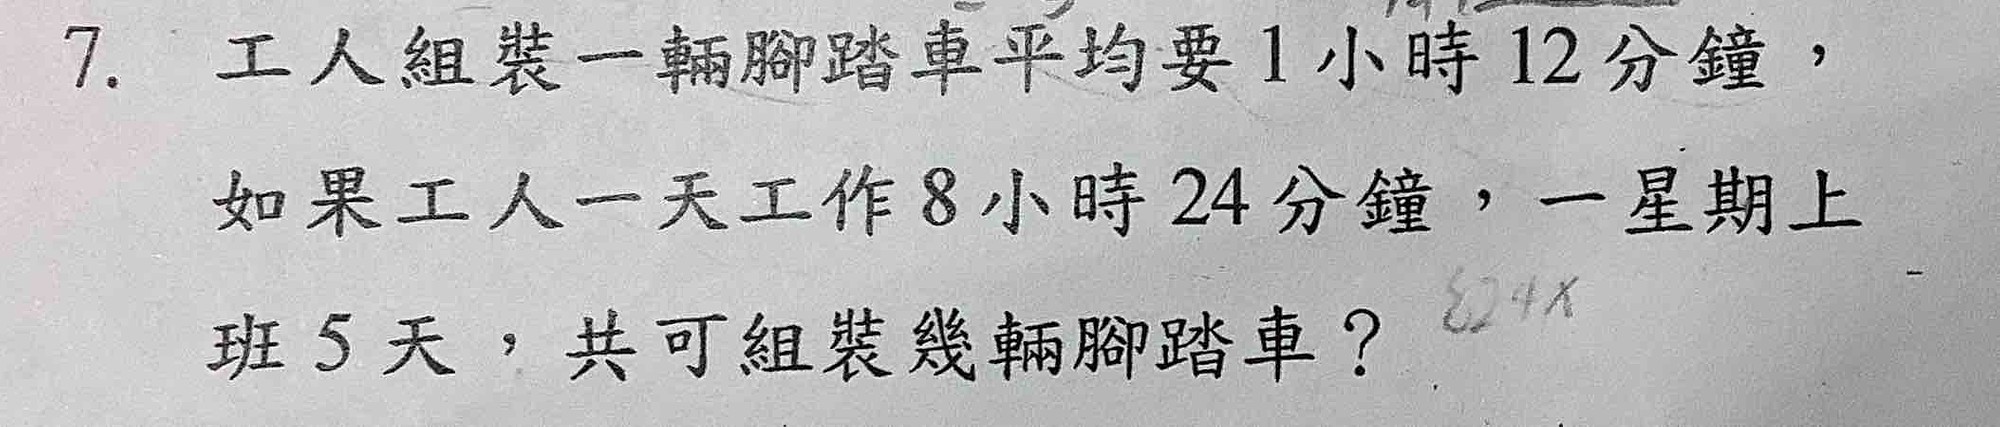 7. 工人組裝一輛腳踏車平均要1小時12分鐘，
如果工人一天工作8小時24分鐘，一星期上
班5天，共可組裝幾輛腳踏車？ 824X